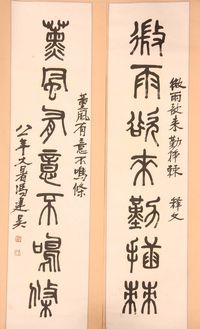 微雨欲來勤插棘
微雨欲来勤插棘 释文
薰風有意不鳴條
薰風有意不鳴條
年大暑冯建吴